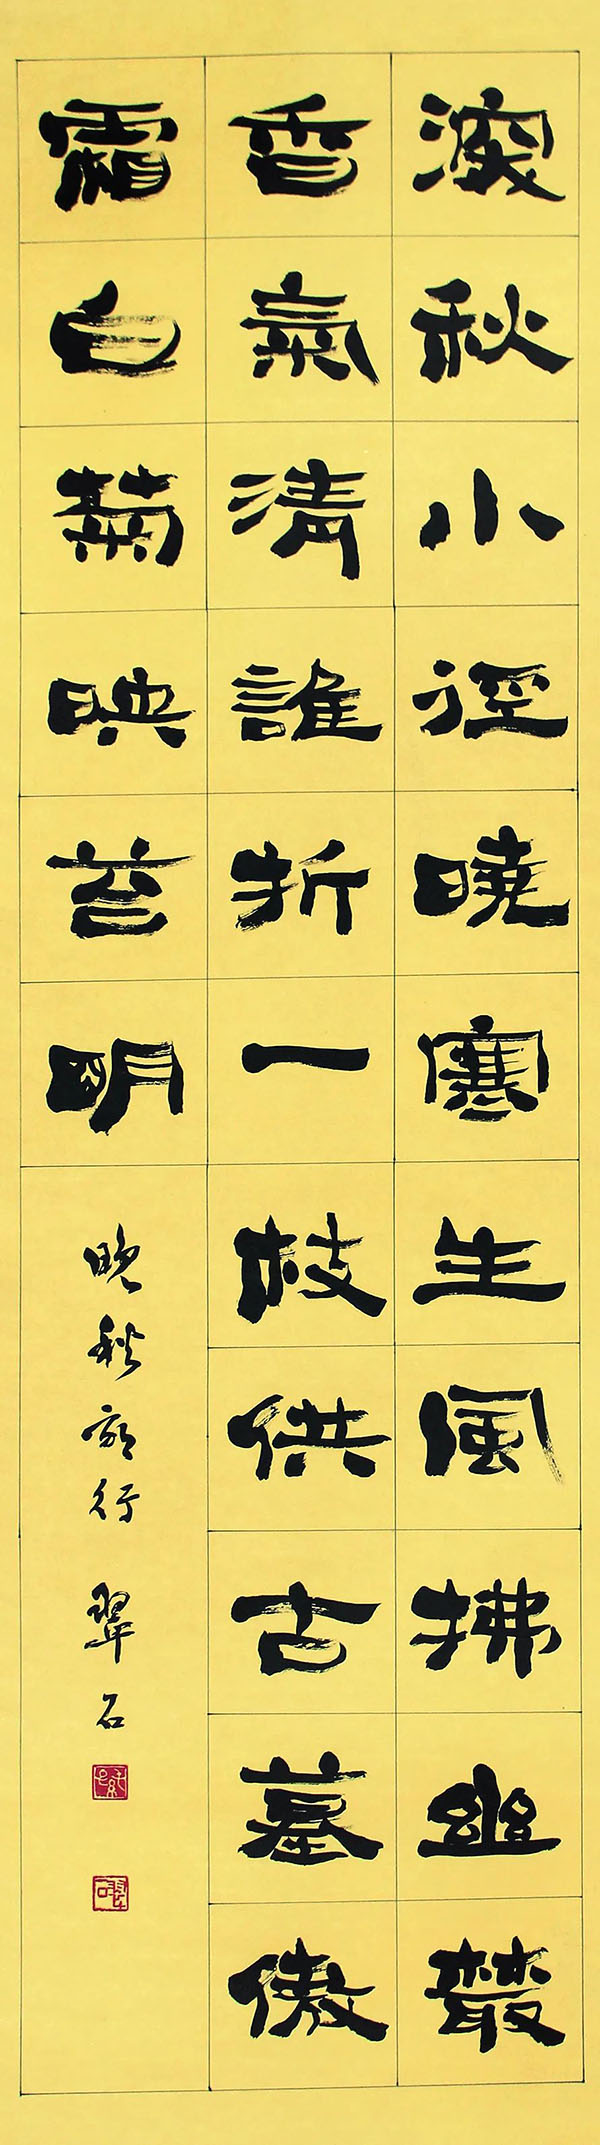 深秋小徑曉寒生風拂幽叢
香氣清誰折一枝供古墓傲
霜白菊映苔明
晚秋郊行 翠石